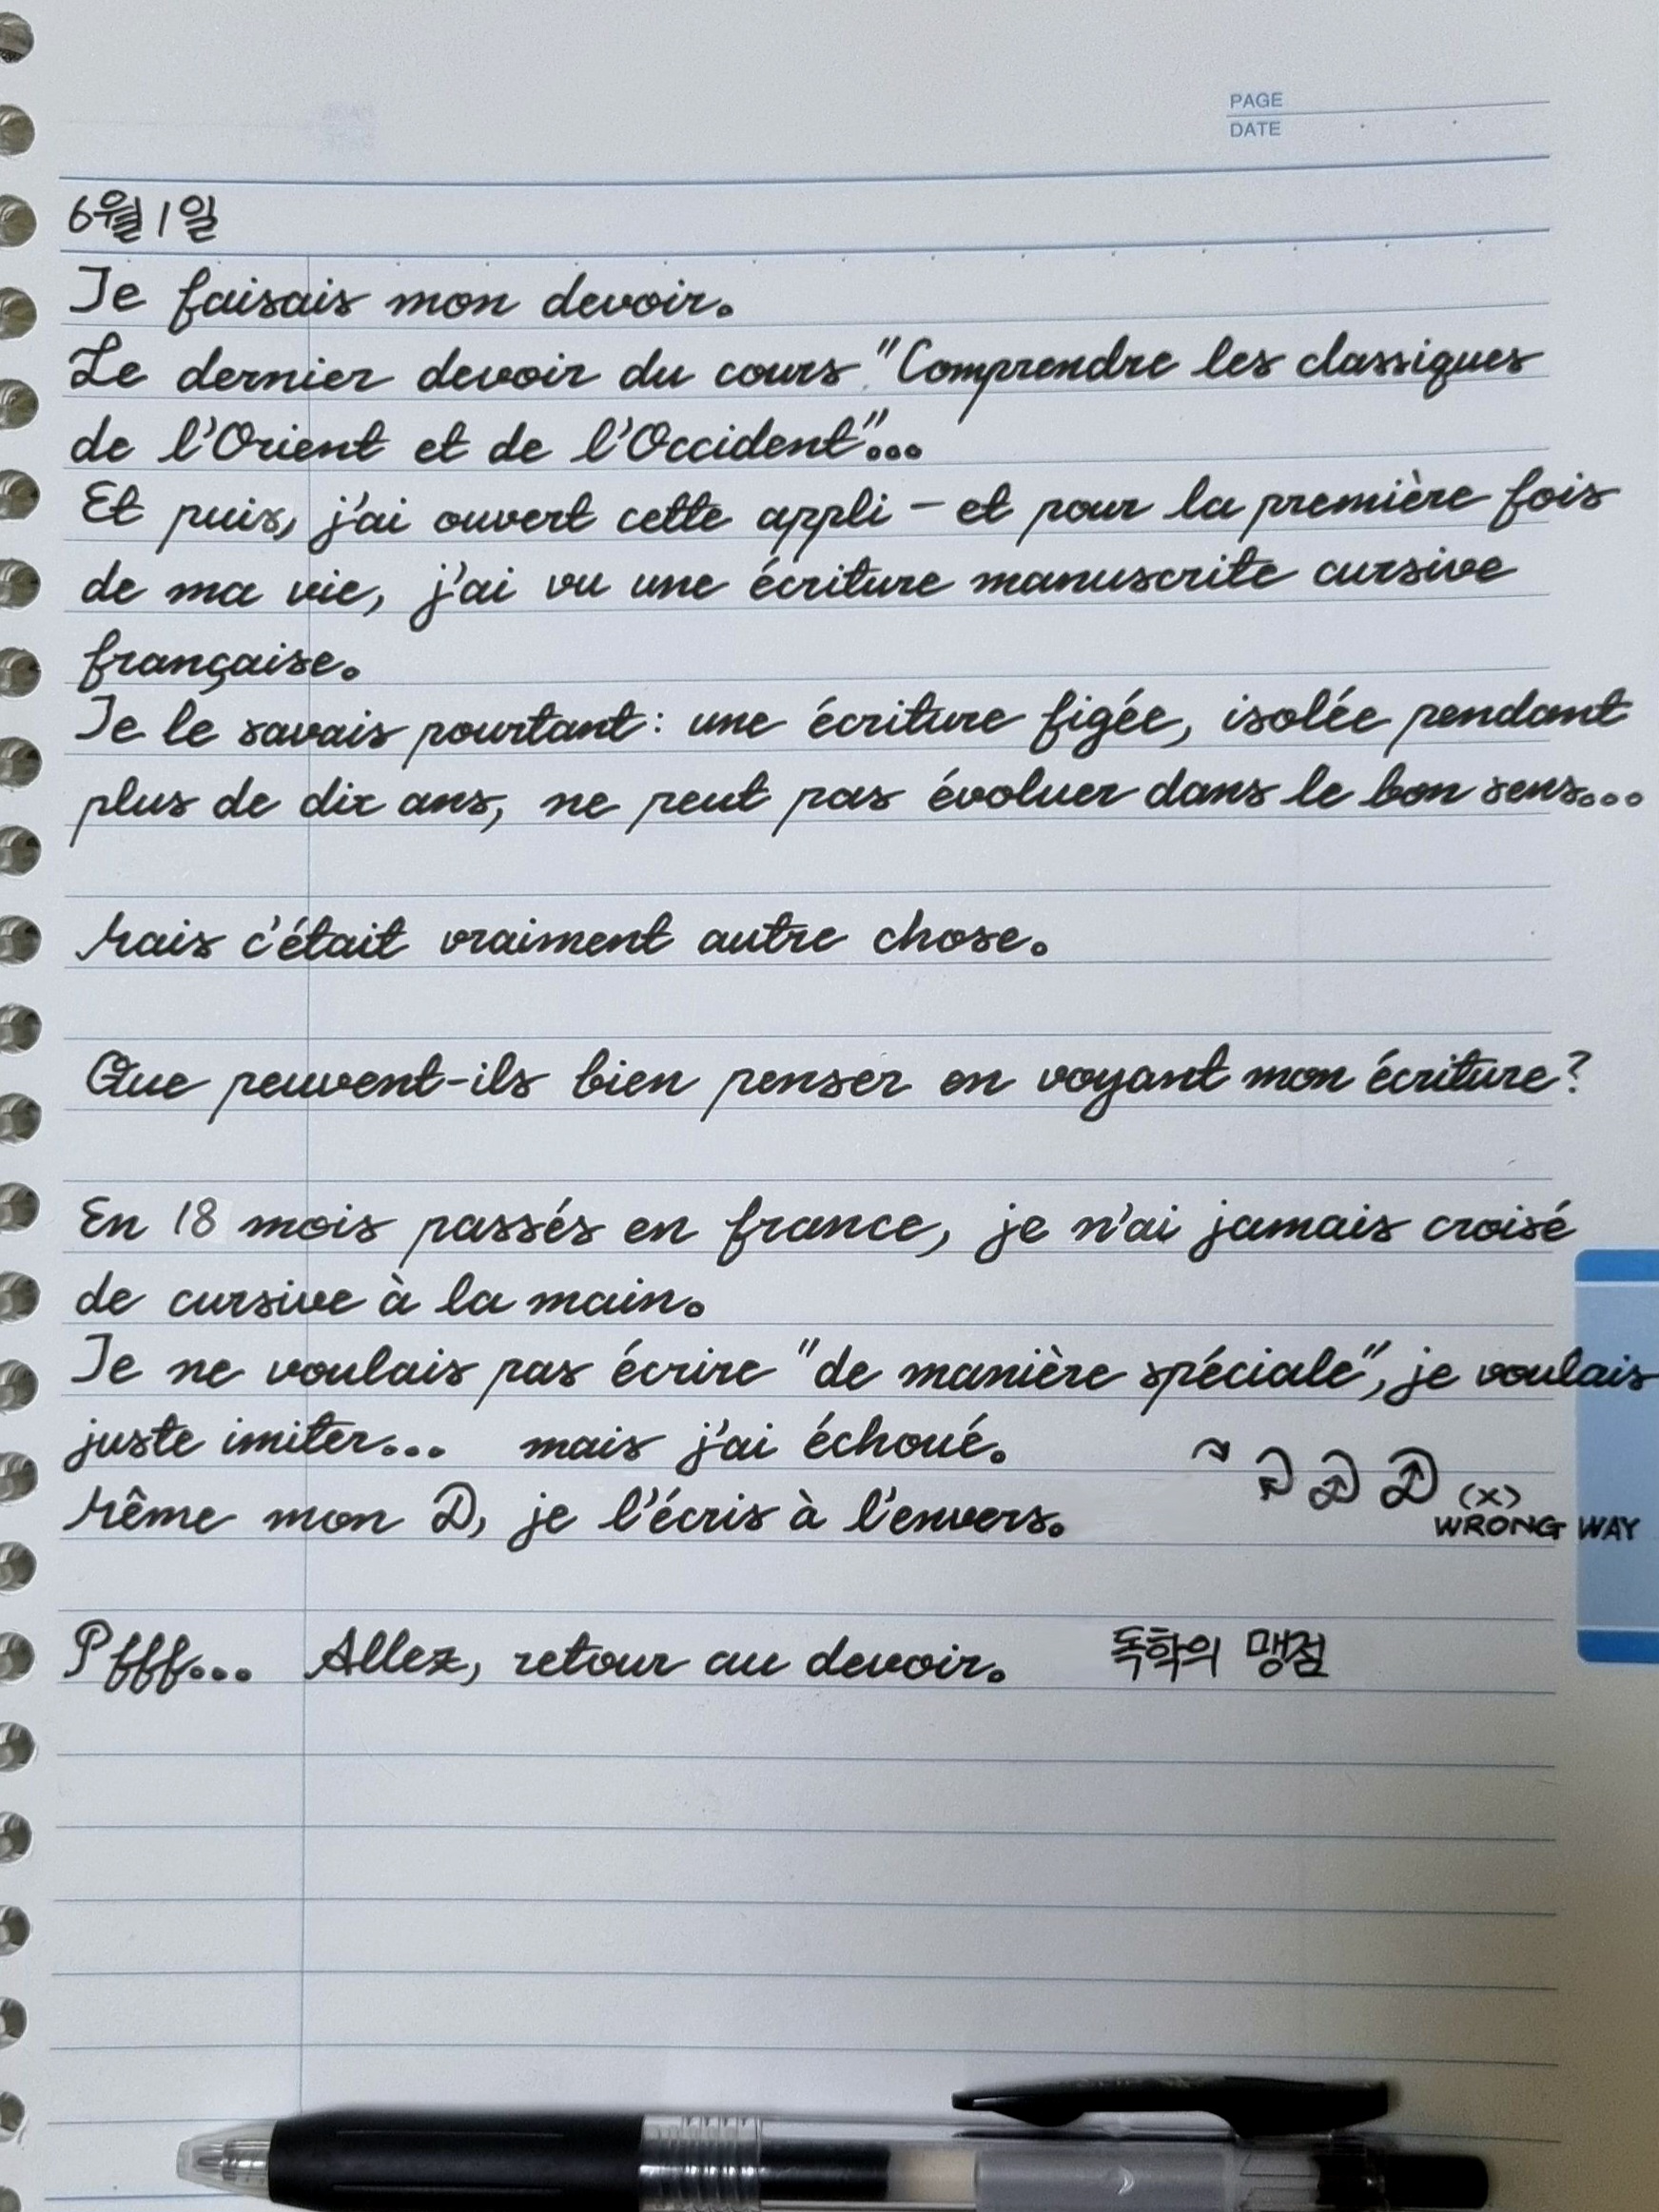 PAGE
DATE
6월 1일
Je faisais mon devoir.
Le dernier devoir du cours "Comprendre les classiques
de l'Orient et de l'Occident"...
Et puis, j'ai ouvert cette appli – et pour la première fois
de ma vie, j'ai vu une écriture manuscrite cursive
française.
Je le savais pourtant : une écriture figée, isolée pendant
plus de dix ans, ne peut pas évoluer dans le bon sens...
Mais c'était vraiment autre chose.
Que peuvent-ils bien penser en voyant mon écriture ?
En 18 mois passés en france, je n'ai jamais croisé
de cursive à la main.
Je ne voulais pas écrire "de manière spéciale", je voulais
juste imiter... mais j'ai échoué.
Même mon D, je l'écris à l'envers.
(X)
WRONG WAY
Pfff... Allez, retour au devoir. 독학의 맹점